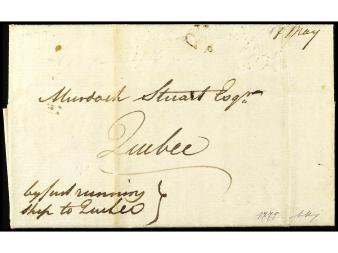 8 May
Murdoch Stuart Esqr
Quebec
by fast running
ship to Quebec